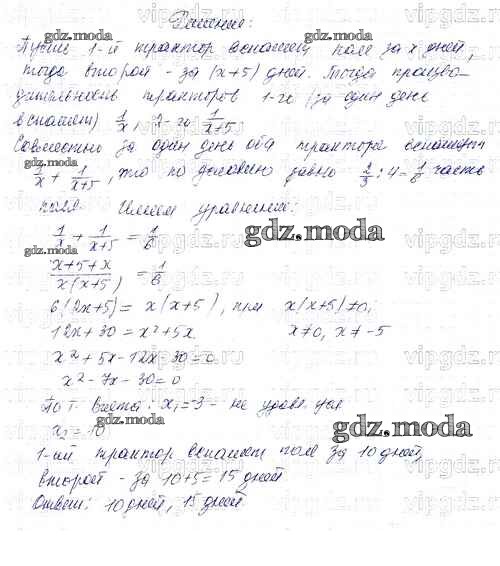 Решение:
Пусть 1-й трактор вспашет поле за x дней,
тогда второй - за (x+5) дней. Тогда произво-
дительность тракторов 1-го (за один день
вспашет) 1/x, 2-го 1/(x+5)
Совместно за один день оба трактора вспашут
1/x + 1/(x+5), что по условию равно 2/3 : 4 = 1/6 часть
поля. Имеем уравнение:
1/x + 1/(x+5) = 1/6
(x+5+x)/(x(x+5)) = 1/6
6(2x+5) = x(x+5), при x(x+5)≠0,
12x+30 = x²+5x x≠0, x≠-5
x²+5x-12x-30=0
x²-7x-30=0
По т. Виета: x₁=-3 - не удовл. усл.
x₂=10
1-ый трактор вспашет поле за 10 дней,
второй - за 10+5=15 дней
Ответ: 10 дней, 15 дней.
gdz.moda
vipgdz.ru